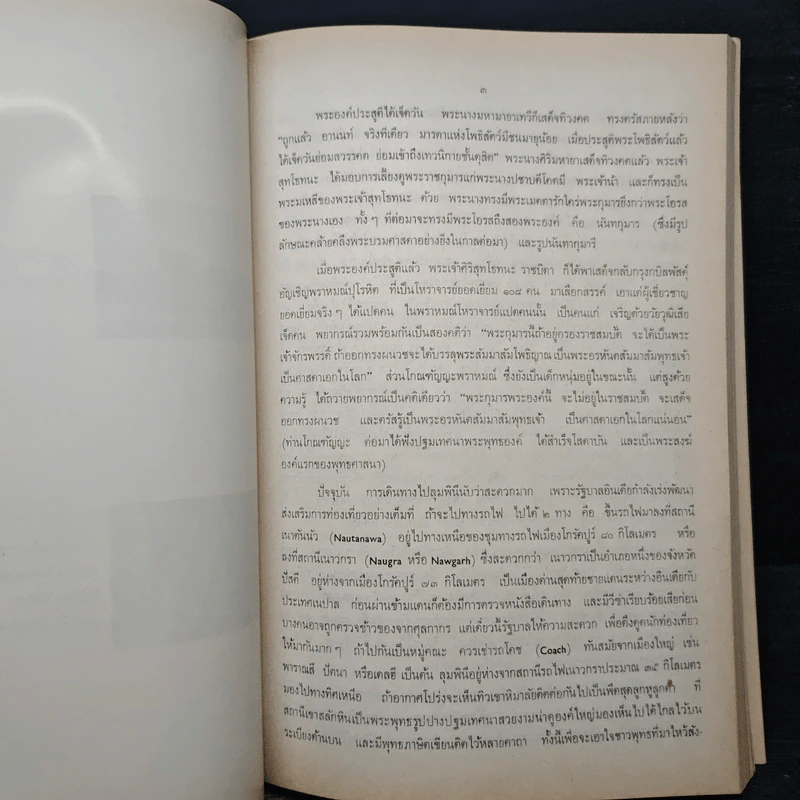 ๓
พระองค์ประสูติได้เจ็ดวัน พระนางมหามายาเทวีก็เสด็จทิวงคต ทรงตรัสภายหลังว่า
"ถูกแล้ว อานนท์ จริงทีเดียว มารดาแห่งโพธิสัตว์มีชนมายุน้อย เมื่อประสูติพระโพธิสัตว์แล้ว
ได้เจ็ดวันย่อมสวรรคต ย่อมเข้าถึงเทวนิกายชั้นดุสิต" พระนางศิริมหามายาเสด็จทิวงคตแล้ว พระเจ้า
สุทโธทนะ ได้มอบการเลี้ยงดูพระราชกุมารแก่พระนางปชาบดีโคตมี พระเจ้าน้า และก็ทรงเป็น
พระมเหสีของพระเจ้าสุทโธทนะ ด้วย พระนางทรงมีพระเมตตารักใคร่พระกุมารยิ่งกว่าพระโอรส
ของพระนางเอง ทั้ง ๆ ที่ต่อมาจะทรงมีพระโอรสถึงสองพระองค์ คือ นันทกุมาร (ซึ่งมีรูป
ลักษณะคล้ายคลึงพระบรมศาสดาอย่างยิ่งในกาลต่อมา) และรูปนันทากุมารี
เมื่อพระองค์ประสูติแล้ว พระเจ้าศิริสุทโธทนะ ราชบิดา ก็ได้พาเสด็จกลับกรุงกบิลพัสดุ์
อัญเชิญพราหมณ์ปุโรหิต ที่เป็นโหราจารย์ยอดเยี่ยม ๑๐๘ คน มาเลือกสรรค์ เอาแต่ผู้เชี่ยวชาญ
ยอดเยี่ยมจริง ๆ ได้แปดคน ในพราหมณ์โหราจารย์แปดคนนั้น เป็นคนแก่ เจริญด้วยวัยวุฒิเสีย
เจ็ดคน พยากรณ์รวมพร้อมกันเป็นสองคติว่า "พระกุมารนี้ถ้าอยู่ครองราชสมบัติ จะได้เป็นพระ
เจ้าจักรพรรดิ์ ถ้าออกทรงผนวชจะได้บรรลุพระสัมมาสัมโพธิญาณ เป็นพระอรหันตสัมมาสัมพุทธเจ้า
เป็นศาสดาเอกในโลก" ส่วนโกณฑัญญะพราหมณ์ ซึ่งยังเป็นเด็กหนุ่มอยู่ในขณะนั้น แต่สูงด้วย
ความรู้ ได้ถวายพยากรณ์เป็นคติเดียวว่า "พระกุมารพระองค์นี้ จะไม่อยู่ในราชสมบัติ จะเสด็จ
ออกทรงผนวช และตรัสรู้เป็นพระอรหันตสัมมาสัมพุทธเจ้า เป็นศาสดาเอกในโลกแน่นอน"
(ท่านโกณฑัญญะ ต่อมาได้ฟังปฐมเทศนาพระพุทธองค์ ได้สำเร็จโสดาบัน และเป็นพระสงฆ์
องค์แรกของพุทธศาสนา)
ปัจจุบัน การเดินทางไปลุมพินีนับว่าสะดวกมาก เพราะรัฐบาลอินเดียกำลังเร่งพัฒนา
ส่งเสริมการท่องเที่ยวอย่างเต็มที่ ถ้าจะไปทางรถไฟ ไปได้ ๒ ทาง คือ ขึ้นรถไฟมาลงที่สถานี
เนาตันนัว (Nautanawa) อยู่ไปทางเหนือของชุมทางรถไฟเมืองโกรัคปูร์ ๘๐ กิโลเมตร หรือ
ลงที่สถานีเนาวกรา (Naugra หรือ Nawgarh) ซึ่งสะดวกกว่า เนาวกราเป็นอำเภอหนึ่งของจังหวัด
ปัสตี อยู่ห่างจากเมืองโกรัคปูร์ ๗๓ กิโลเมตร เป็นเมืองด่านสุดท้ายชายแดนระหว่างอินเดียกับ
ประเทศเนปาล ก่อนผ่านข้ามแดนก็ต้องมีการตรวจหนังสือเดินทาง และมีวีซ่าเรียบร้อยเสียก่อน
บางคนอาจถูกตรวจข้าวของจากศุลกากร แต่เดี๋ยวนี้รัฐบาลให้ความสะดวก เพื่อดึงดูดนักท่องเที่ยว
ให้มากันมาก ๆ ถ้าไปกันเป็นหมู่คณะ ควรเช่ารถโคช (Coach) ทันสมัยจากเมืองใหญ่ เช่น
พาราณสี ปัตนา หรือเดลฮี เป็นต้น ลุมพินีอยู่ห่างจากสถานีรถไฟเนาวกราประมาณ ๓๕ กิโลเมตร
มองไปทางทิศเหนือ ถ้าอากาศโปร่งจะเห็นทิวเขาหิมาลัยติดต่อกันไปเป็นพืดสุดลูกหูลูกตา ที่
สถานีเขาสลักหินเป็นพระพุทธรูปปางปฐมเทศนาสวยงามน่าดูองค์ใหญ่มองเห็นไปได้ไกลไว้บน
ระเบียงด้านบน และมีพุทธภาษิตเขียนติดไว้หลายคาถา ทั้งนี้เพื่อจะเอาใจชาวพุทธที่มาไหว้สัง-